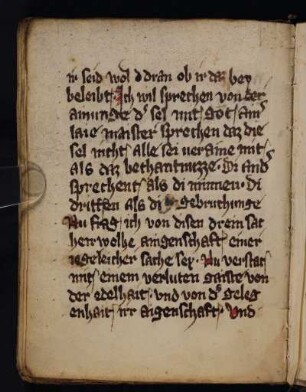 ir seid wol d dran ob ir daz bey
beleibt. Ich wil sprechen von der
ainungde d' sel mit got. ain
laie maister sprechen daz die
sel nicht alle sei veraine mit
als daz bechantnuzze. Di and
sprechent als di minnen. Di
dritten als di gebruchunge
Nu frag ich von disen drein sac
hen wolhe aigenschaft einer
iegeleicher sache sey. Nu verstat
mit einem verluten gaiste von
der edelhait. vnd von d' geleg
enhait irr aigenschaft. Vnd